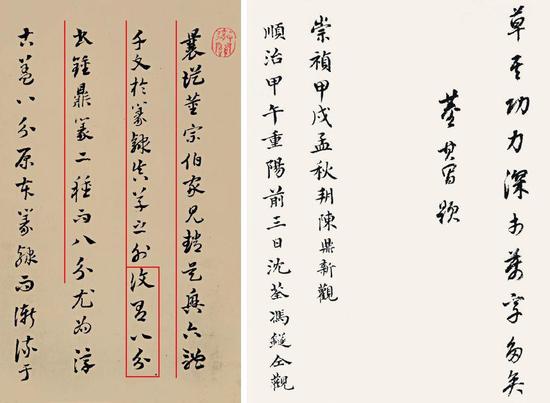 曩從董宗伯家見趙吳興六體
千文於篆隸真草之外復有八分
書鐘鼎篆二種而八分尤為淳
古蓋八分原本篆隸而漸流于
草功力深字多矣
董其昌題
崇禎甲戌孟秋朔陳鼎新觀
順治甲午重陽前三日沈荃馮仝觀